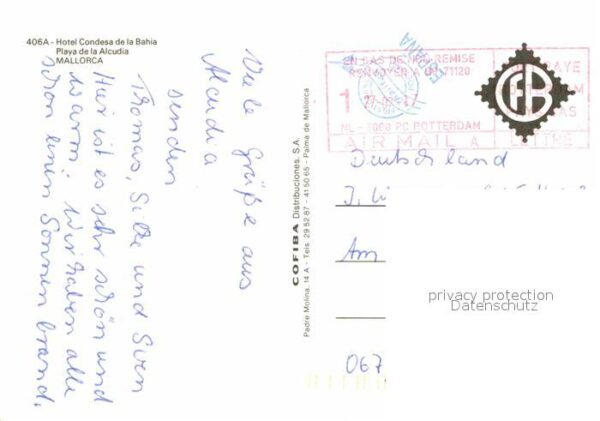 406A - Hotel Condesa de la Bahia
Playa de la Alcudia
MALLORCA
Viele Grüße aus
Alcudia
senden
Thomas, Silke und Sven
Hier ist es sehr schön und
warm. Wir haben alle
schon einen Sonnenbrand.
COFIBA Distribuciones, S.A.
Padre Molina, 14 A - Tels. 29 52 87 - 41 50 65 - Palma de Mallorca
ESPAÑA
EN CAS DE NON REMISE
71120
1
NL - 3000 PC ROTTERDAM
AIR MAIL A
PAYE
ROTTERDAM
PAYS-BAS
Deutschland
Am
067
privacy protection
Datenschutz